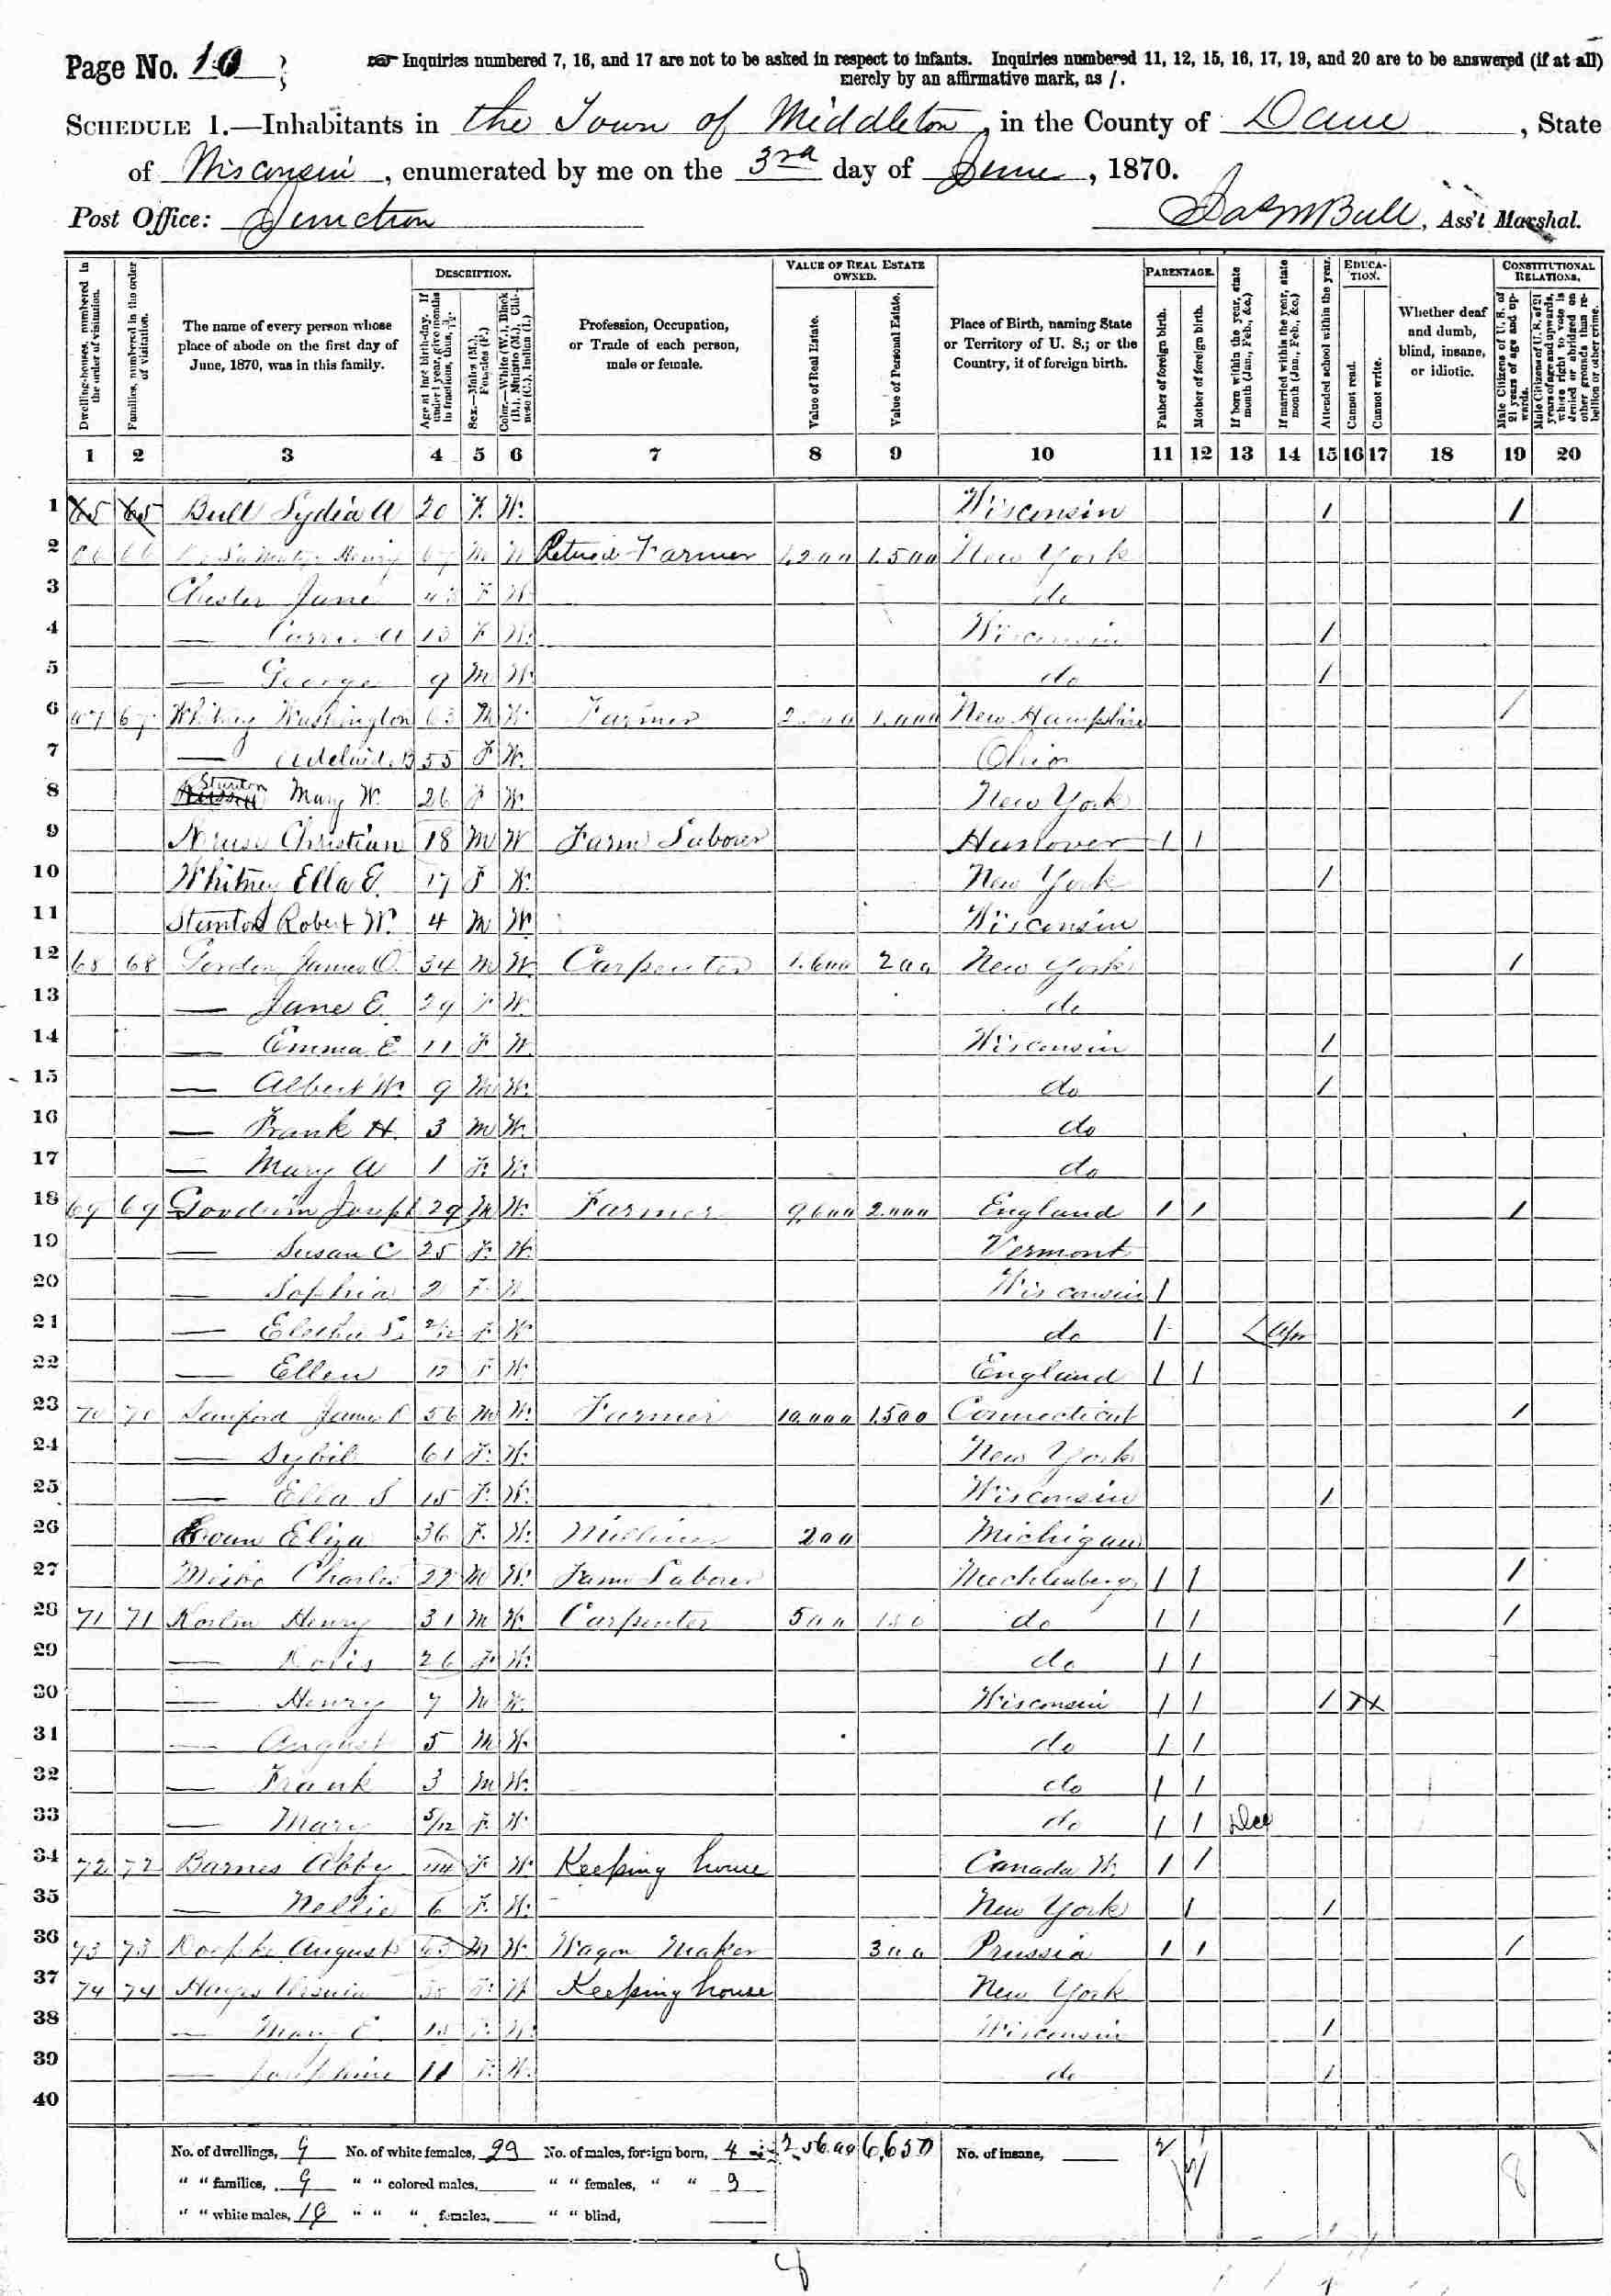 Page No. 10
Inquiries numbered 7, 16, and 17 are not to be asked in respect to infants. Inquiries numbered 11, 12, 15, 16, 17, 19, and 20 are to be answered (if at all)
merely by an affirmative mark, as /.
SCHEDULE 1.—Inhabitants in the Town of Middleton, in the County of Dane, State
of Wisconsin, enumerated by me on the 3rd day of June, 1870.
Post Office: Junction
Bull, Ass't Marshal.
DESCRIPTION. VALUE OF REAL ESTATE OWNED. PARENTAGE. EDUCATION. CONSTITUTIONAL RELATIONS.
Dwelling-houses, numbered in the order of visitation.
Families, numbered in the order of visitation.
The name of every person whose place of abode on the first day of June, 1870, was in this family.
Age at last birth-day. If under 1 year, give months in fractions, thus, 3/12.
Sex.—Males (M.), Females (F.)
Color.—White (W.), Black (B.), Mulatto (M.), Chinese (C.), Indian (I.)
Profession, Occupation, or Trade of each person, male or female.
Value of Real Estate.
Value of Personal Estate.
Place of Birth, naming State or Territory of U. S.; or the Country, if of foreign birth.
Father of foreign birth.
Mother of foreign birth.
If born within the year, state month (Jan., Feb., &c.)
If married within the year, state month (Jan., Feb., &c.)
Attended school within the year.
Cannot read.
Cannot write.
Whether deaf and dumb, blind, insane, or idiotic.
Male Citizens of U. S. of 21 years of age and upwards.
Male Citizens of U. S. of 21 years of age and upwards, whose right to vote is denied or abridged on other grounds than rebellion or other crime.
1 2 3 4 5 6 7 8 9 10 11 12 13 14 15 16 17 18 19 20
1 65 65 Bull Lydia A 20 F. W. Wisconsin / /
2 66 66 Henry 67 M W Retired Farmer 1,200 1,500 New York
3 Chester Jane F W do
4 — Carrie A 13 F W. Wisconsin /
5 — George 9 M W. do /
6 67 67 Whitney Washington 63 M W Farmer 1,000 New Hampshire /
7 — Adelaid B 55 F W. Ohio
8 Stunton Mary W. 26 F W. New York
9 Christian 18 M W Farm Labourer Hannover / /
10 Whitney Ella E. 17 F W. New York /
11 Stunton Robert W. 4 M W Wisconsin
12 68 68 Gordon James O. 34 M W. Carpenter 1,600 200 New York /
13 — Jane E. 29 F W. do
14 — Emma E 11 F W. Wisconsin /
15 — Albert W. 9 M W. do /
16 — Frank H. 3 M W. do
17 — Mary A 1 F. W. do
18 69 69 Goodwin Joseph 29 M W. Farmer 9,600 2,000 England / / /
19 — Susan C 25 F. W. Vermont
20 — Sophia 2 F. W Wisconsin /
21 — 2/12 F W do / Apr
22 — Ellen 12 F W. England / /
23 70 70 Sanford James 56 M W. Farmer 10,000 1,500 Connecticut /
24 — Sybil 61 F. W. New York
25 — Ella S 15 F. W. Wisconsin /
26 Eliza 36 F. W. Milliner 200 Michigan
27 Charles 22 M W. Farm Laborer Mechlenberg / / /
28 71 71 Henry 31 M W. Carpenter 500 150 do / / /
29 — Doris 26 F. W. do / /
30 — Henry 7 M W. Wisconsin / / /
31 — August 5 M W. do / /
32 — Frank 3 M W. do / /
33 — Mary 5/12 F. W. do / / Dec
34 72 72 Barnes Abby 44 F. W. Keeping house Canada W. / /
35 — Nellie 6 F. W. New York / /
36 73 73 August 63 M W. Wagon Maker 300 Prussia / / /
37 74 74 Hayes F. W. Keeping house New York
38 — Mary E. F. W. Wisconsin /
39 — Josephine 11 F. W. do /
40
No. of dwellings, 9 No. of white females, No. of males, foreign born, 4 6,650 No. of insane,
" " families, 9 " " colored males, " " females, " "
" " white males, " " " females, " " blind,
8